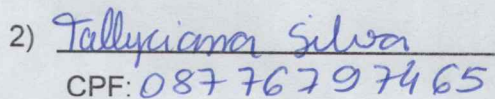 2) Tallyciana Silva
CPF: 087 767 974 65